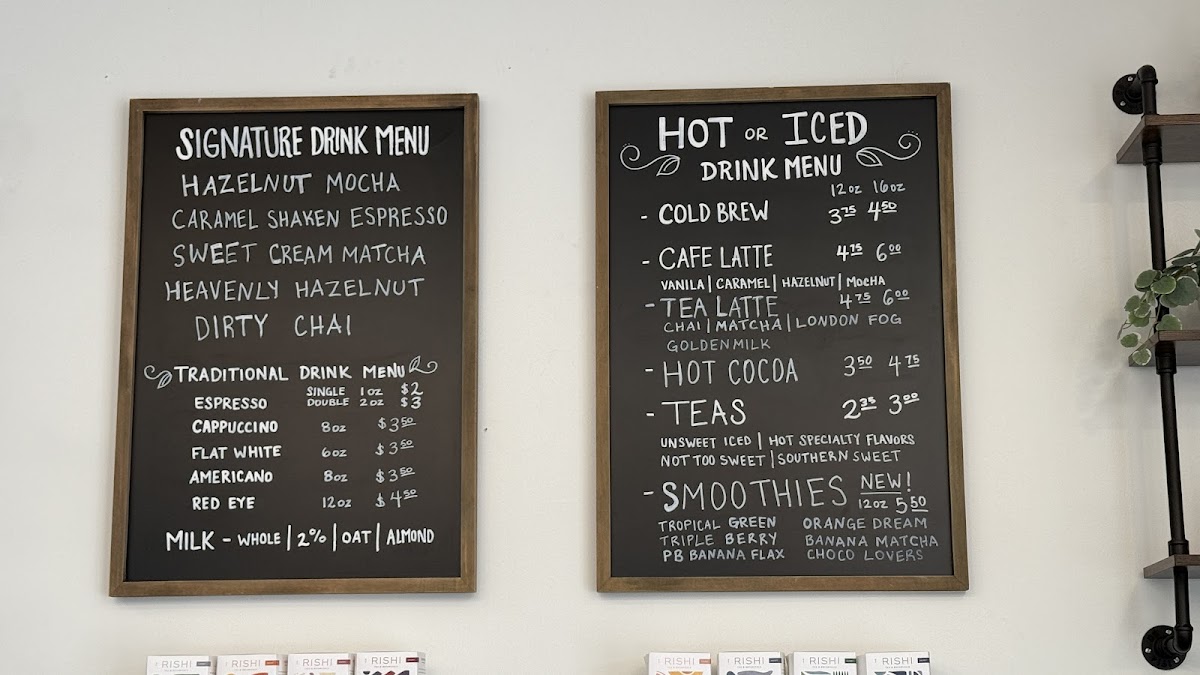 SIGNATURE DRINK MENU
HAZELNUT MOCHA
CARAMEL SHAKEN ESPRESSO
SWEET CREAM MATCHA
HEAVENLY HAZELNUT
DIRTY CHAI
TRADITIONAL DRINK MENU
ESPRESSO SINGLE 1oz $2
DOUBLE 2oz $3
CAPPUCCINO 8oz $3.50
FLAT WHITE 6oz $3.50
AMERICANO 8oz $3.50
RED EYE 12oz $4.50
MILK - WHOLE | 2% | OAT | ALMOND
HOT OR ICED
DRINK MENU
12oz 16oz
- COLD BREW 3 75 4 50
- CAFE LATTE 4 75 6 00
VANILA | CARAMEL | HAZELNUT | MOCHA
- TEA LATTE 4 75 6 00
CHAI | MATCHA | LONDON FOG
GOLDENMILK
- HOT COCOA 3 50 4 75
- TEAS 2 35 3 00
UNSWEET ICED | HOT SPECIALTY FLAVORS
NOT TOO SWEET | SOUTHERN SWEET
- SMOOTHIES NEW!
12oz 5 50
TROPICAL GREEN ORANGE DREAM
TRIPLE BERRY BANANA MATCHA
PB BANANA FLAX CHOCO LOVERS
RISHI RISHI RISHI RISHI
RISHI RISHI RISHI RISHI